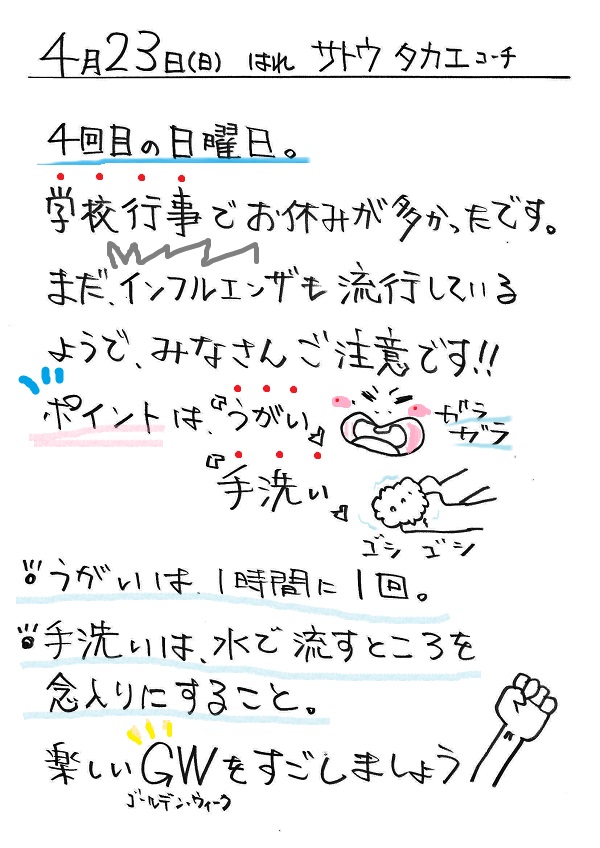 4月23日(日) はれ サトウ タカエ コーチ
4回目の日曜日。
学校行事でお休みが多かったです。
まだ、インフルエンザも流行している
ようで、みなさんご注意です!!
ポイントは、『うがい』
ガラ
ガラ
『手洗い』
ゴシ ゴシ
うがいは、1時間に1回。
手洗いは、水で流すところを
念入りにすること。
楽しいGWをすごしましょう
ゴールデン・ウィーク